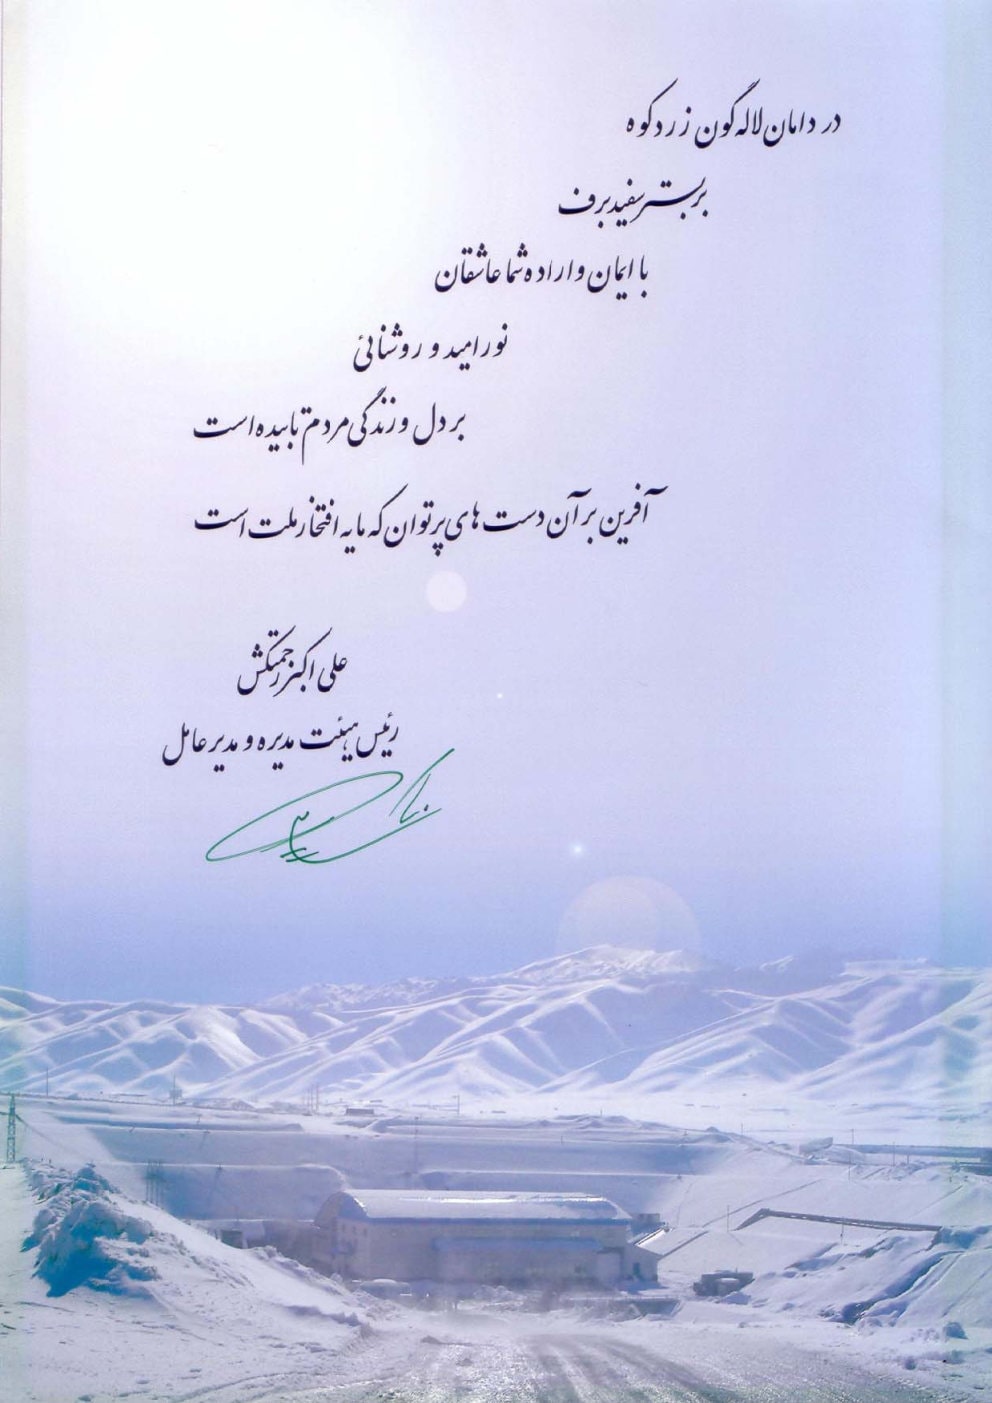 در دامان لاله گون زردکوه
بر بستر سفید برف
با ایمان و اراده شما عاشقان
نور امید و روشنائی
بر دل و زندگی مردم تابیده است
آفرین بر آن دست های پرتوان که مایه افتخار ملت است
علی اکبر رحمتکش
رئیس هیئت مدیره و مدیر عامل